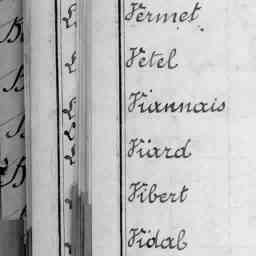 Vermet
Vetel
Viannais
Viard
Vibert
Vidal